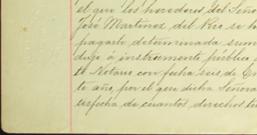 el que los herederos del Señor
José Martinez del Rio se
pagarle determinada suma
dujo á instrumento público
te Notario con fecha seis de En
te año, por el que dicha Señora
isfecha de cuantos derechos